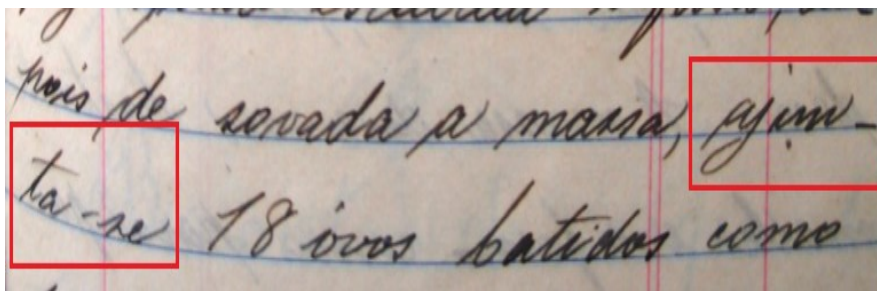 pois de sovada a massa, ajun-
ta-se 18 óvos batidos como